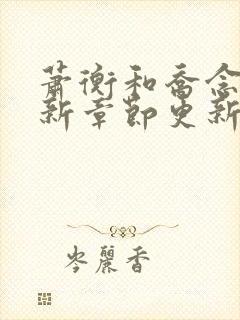 蕭衡和喬念
新章節更新
岑麗香